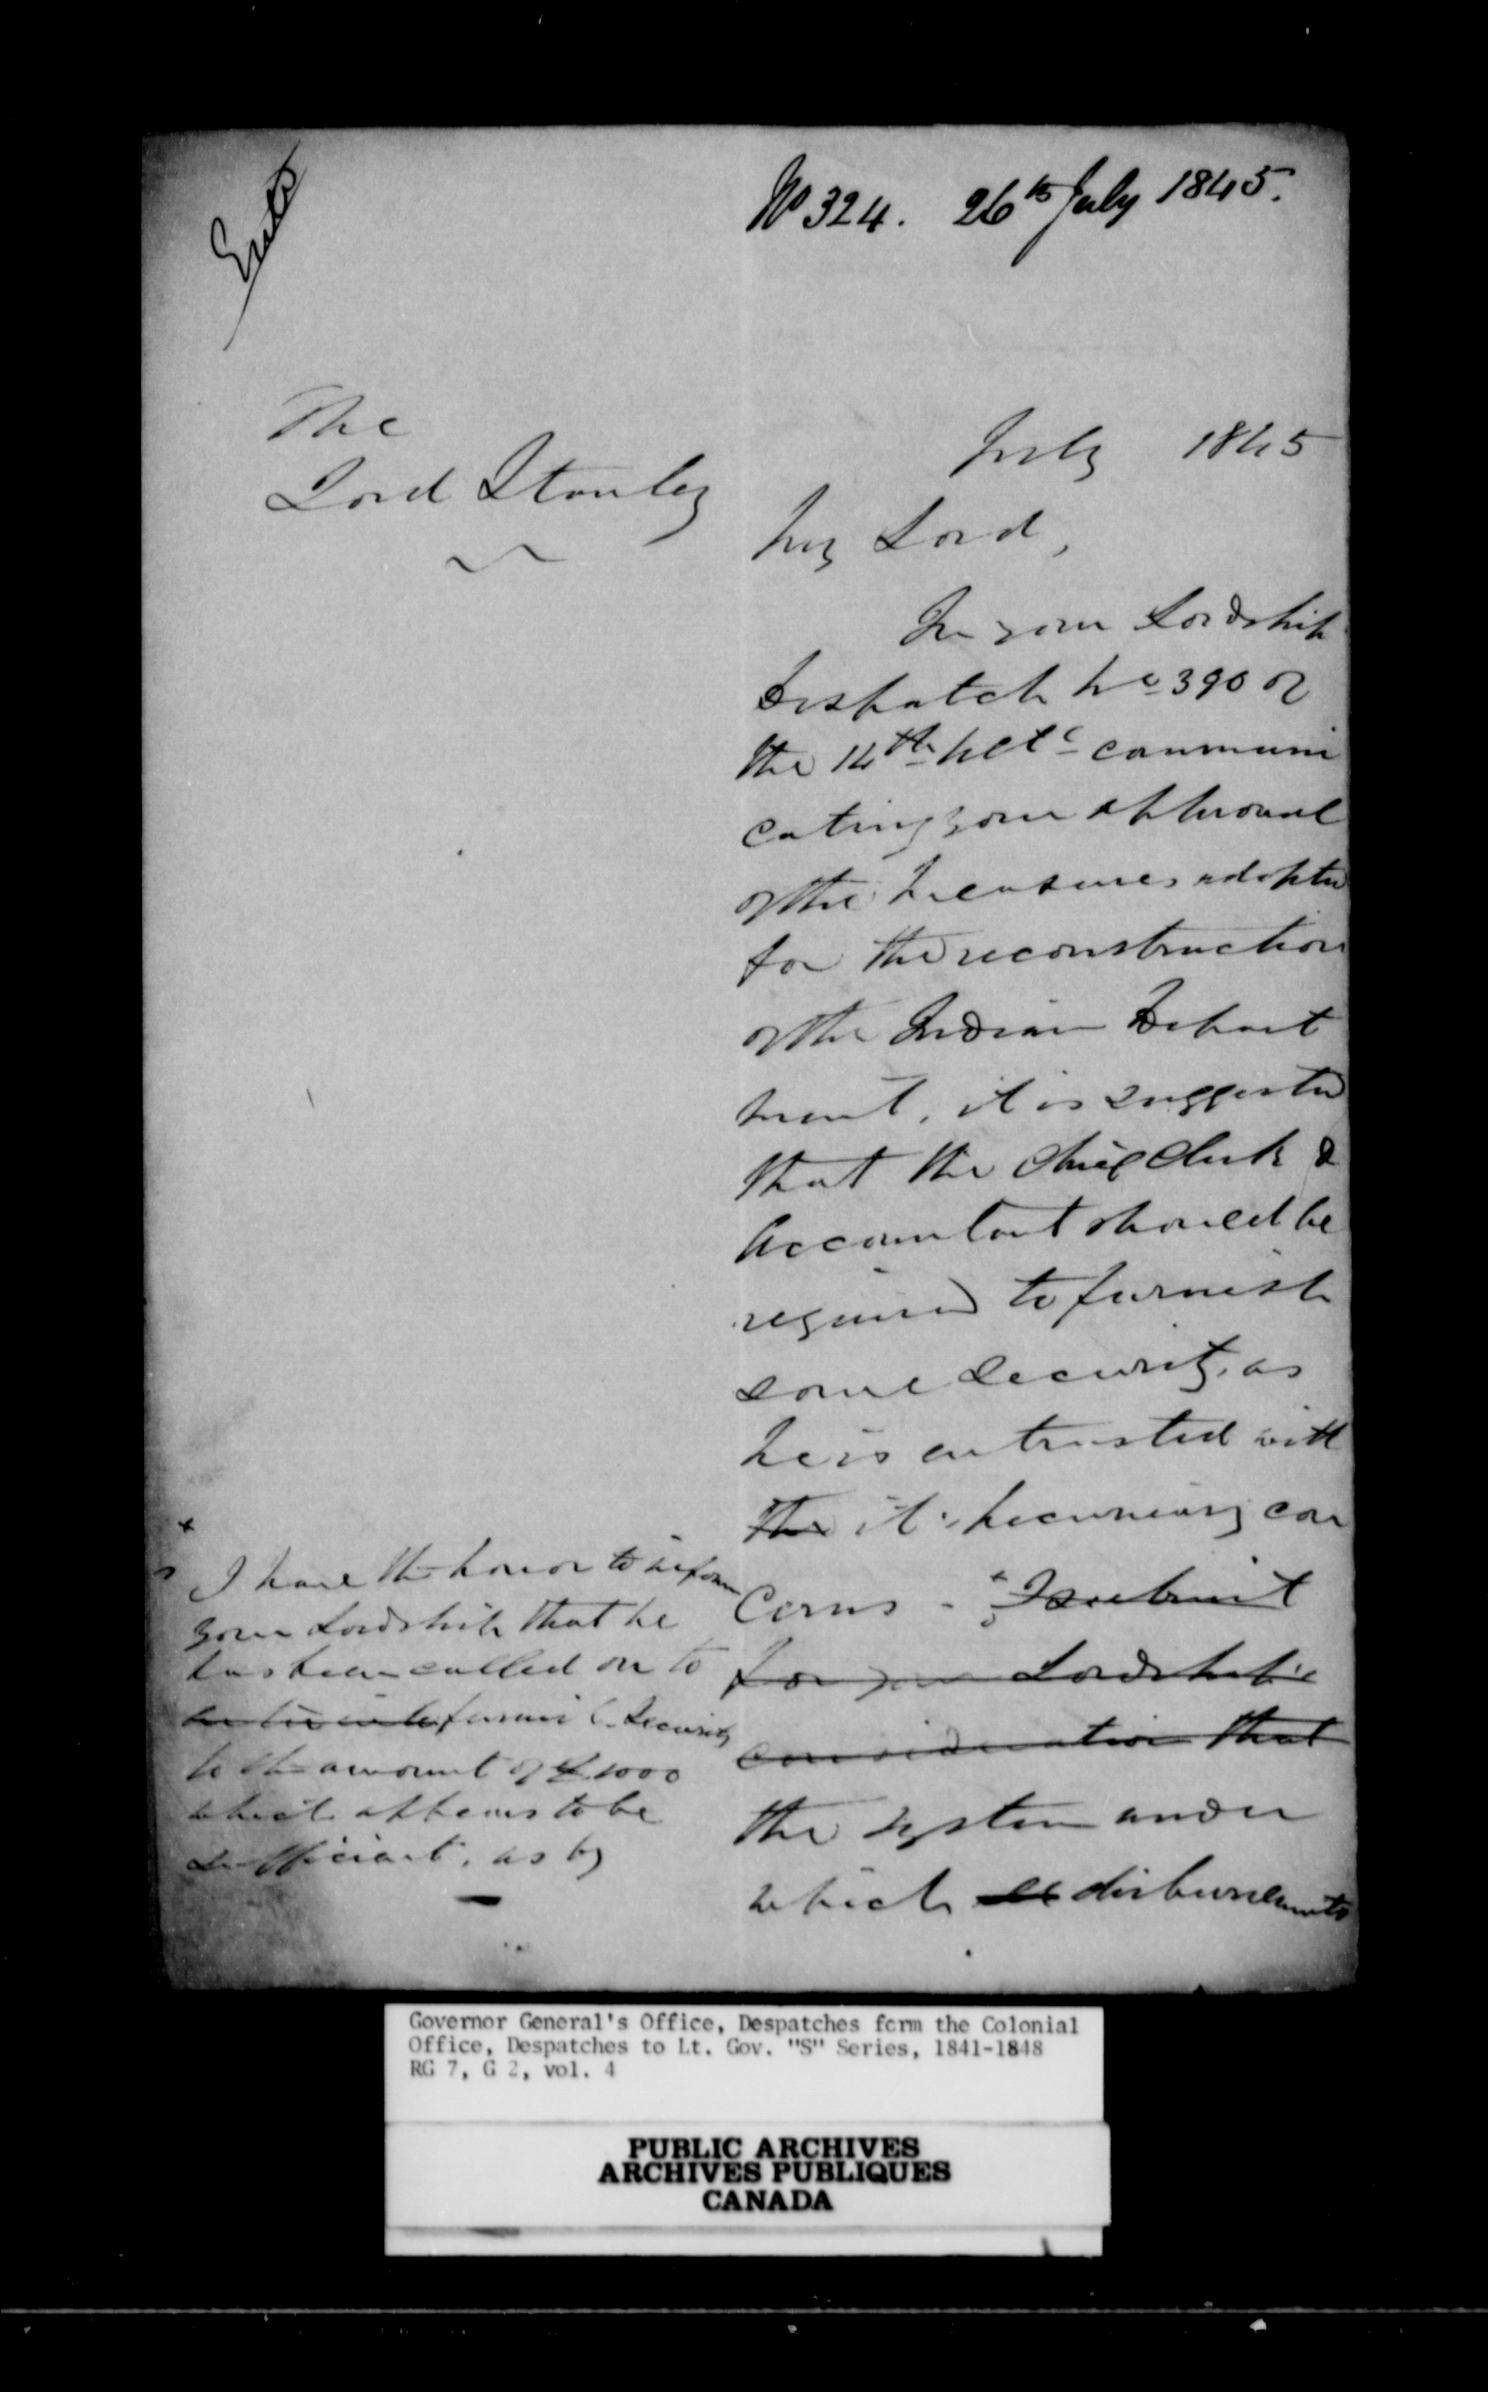 Entd
No 324. 26th July 1845.
The
Lord Stanley
July 1845
My Lord,
In your Lordship
Despatch No 390 of
the 14th communi
cating your approval
of the Measures adopted
for the reconstruction
of the Indian Depart
ment, it is suggested
that the Chief Clerk &
Accountant should be
required to furnish
some Security, as
he is entrusted with
the its pecuniary con
cerns - I submit
for your Lordship's
consideration that
the system under
which disbursements
I have the honor to inform
your Lordship that he
has been called on to
furnish Security
to the amount of £1000
which appears to be
sufficient, as by
Governor General's Office, Despatches form the Colonial
Office, Despatches to Lt. Gov. "S" Series, 1841-1848
RG 7, G 2, vol. 4
PUBLIC ARCHIVES
ARCHIVES PUBLIQUES
CANADA